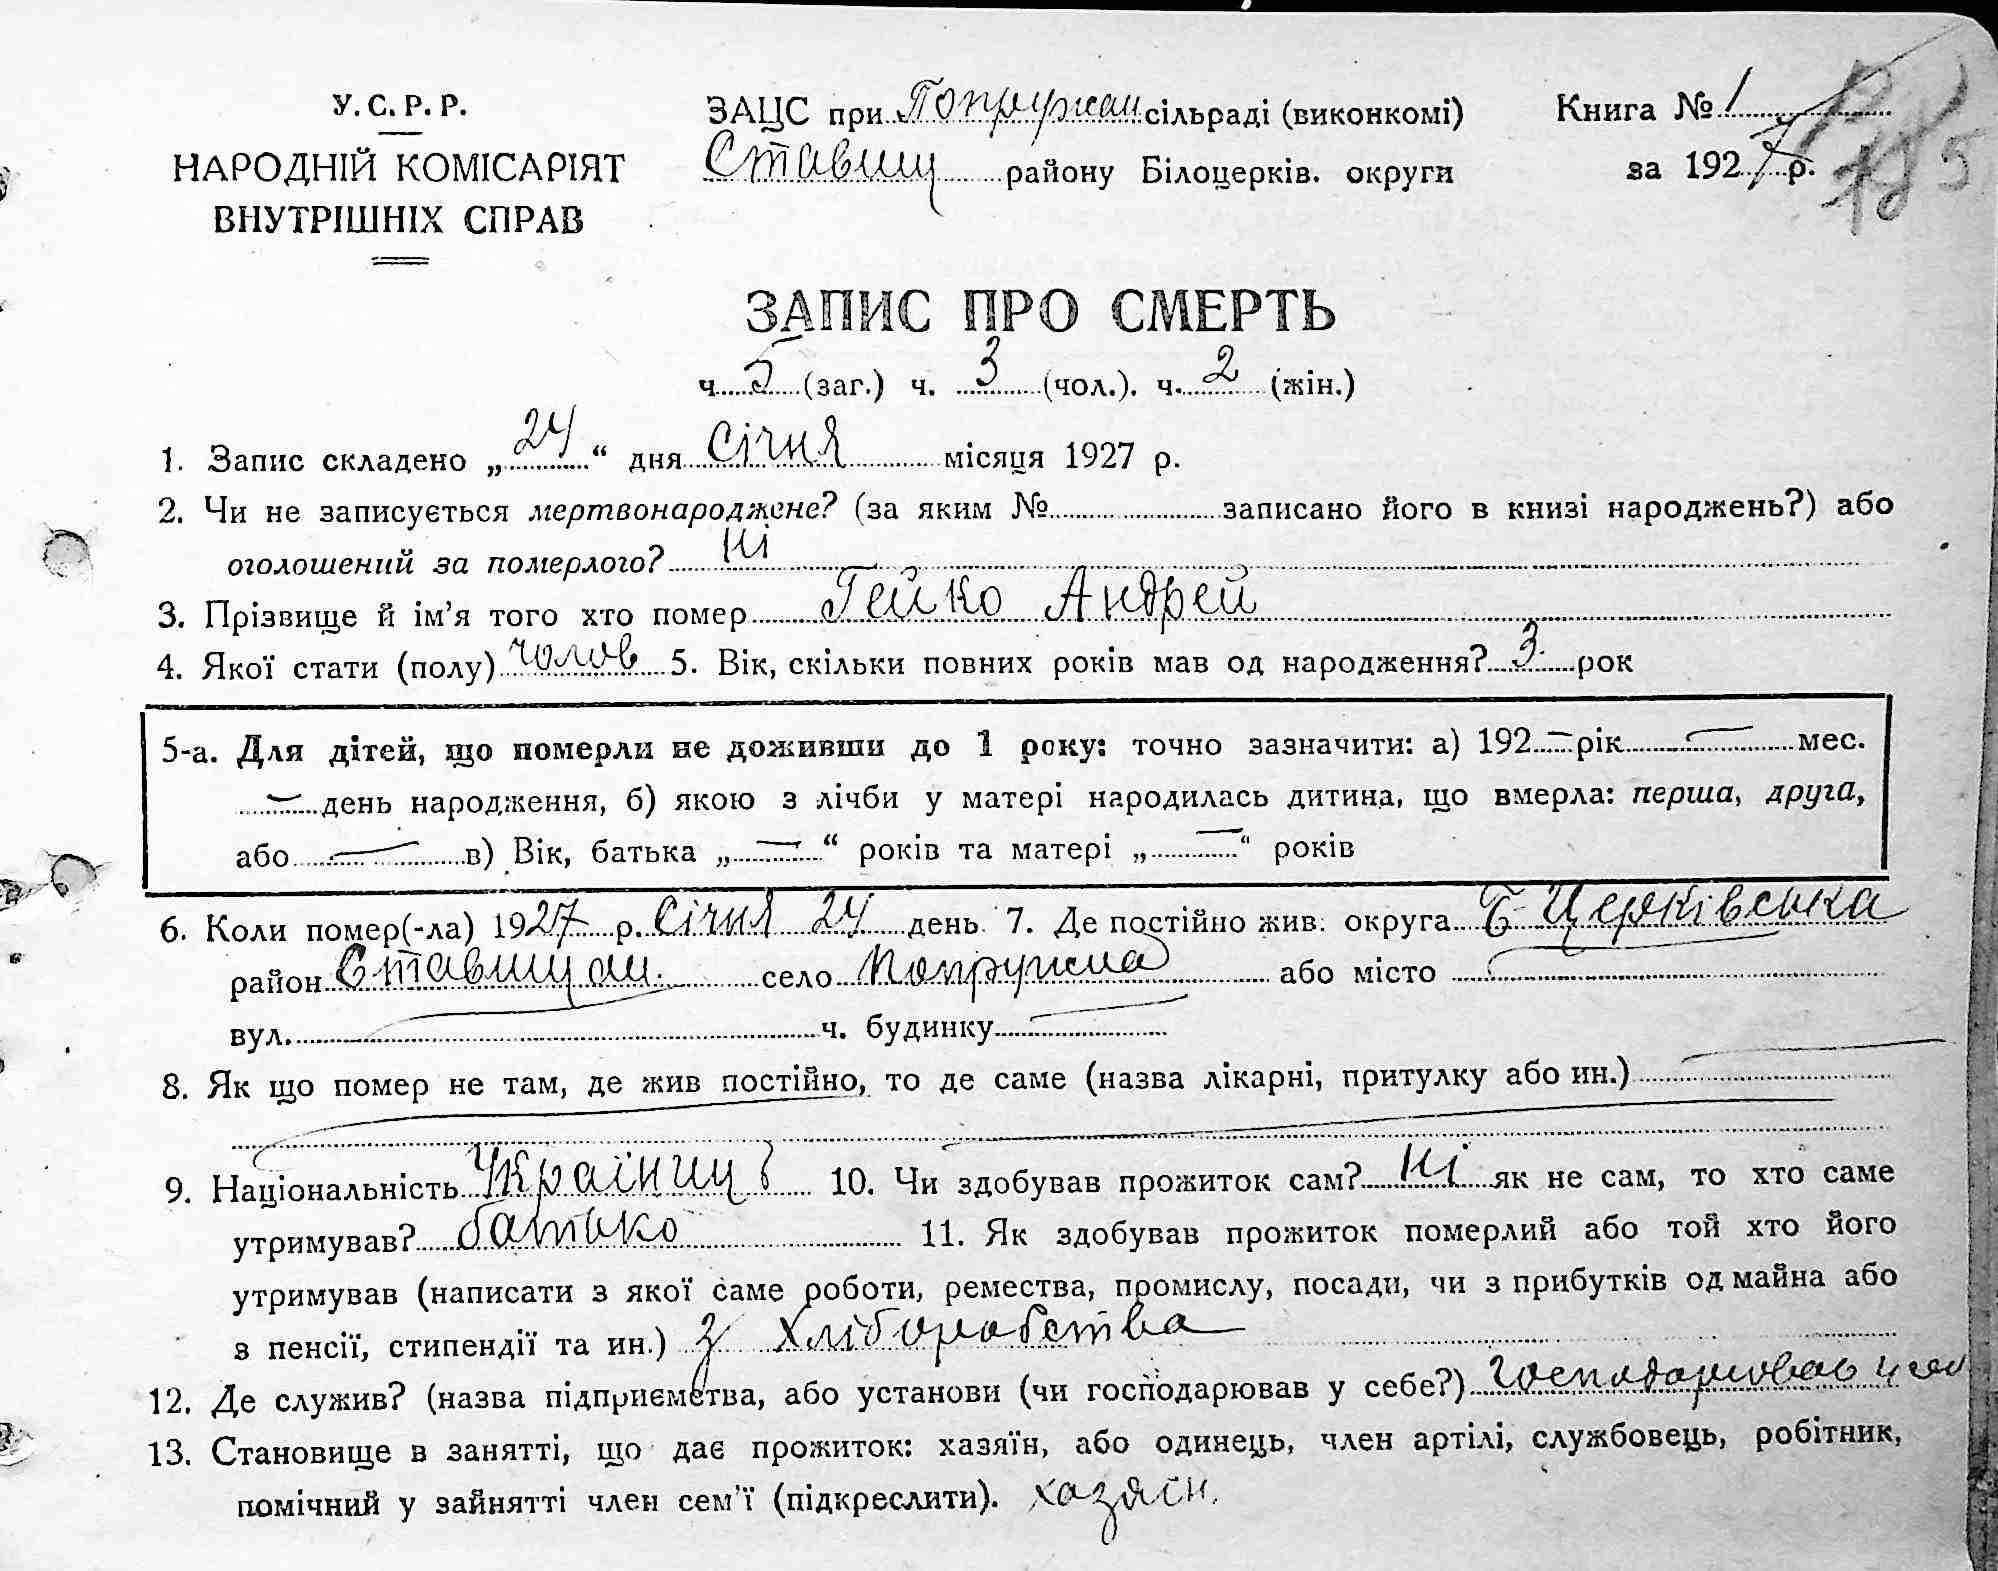 У.С.Р.Р.
НАРОДНІЙ КОМІСАРІЯТ
ВНУТРІШНІХ СПРАВ
ЗАЦС при Попружан сільраді (виконкомі)
Ставищ району Білоцерків. округи
Книга № 1
за 1927 р.
185
ЗАПИС ПРО СМЕРТЬ
ч. 5 (заг.) ч. 3 (чол.). ч. 2 (жін.)
1. Запис складено „24“ дня Січня місяця 1927 р.
2. Чи не записується мертвонароджене? (за яким № записано його в книзі народжень?) або
оголошений за померлого? Ні
3. Прізвище й ім'я того хто помер Гейко Андрей
4. Якої стати (полу) чолов 5. Вік, скільки повних років мав од народження? 3 рок
5-а. Для дітей, що померли не доживши до 1 року: точно зазначити: а) 192 — рік — мес.
— день народження, б) якою з лічби у матері народилась дитина, що вмерла: перша, друга,
або — в) Вік, батька „—“ років та матері „—“ років
6. Коли помер(-ла) 1927 р. Січня 24 день 7. Де постійно жив: округа Б-Церківська
район Ставищан. село Попружна або місто —
вул. — ч. будинку —
8. Як що помер не там, де жив постійно, то де саме (назва лікарні, притулку або ин.) —
9. Національність Україниць 10. Чи здобував прожиток сам? Ні як не сам, то хто саме
утримував? батько 11. Як здобував прожиток померлий або той хто його
утримував (написати з якої саме роботи, ремества, промислу, посади, чи з прибутків од майна або
з пенсії, стипендії та ин.) з хліборобства
12. Де служив? (назва підприємства, або установи (чи господарював у себе?) господарював у себе
13. Становище в занятті, що дає прожиток: хазяїн, або одинець, член артілі, службовець, робітник,
помічний у зайнятті член сем'ї (підкреслити). хазяїн.